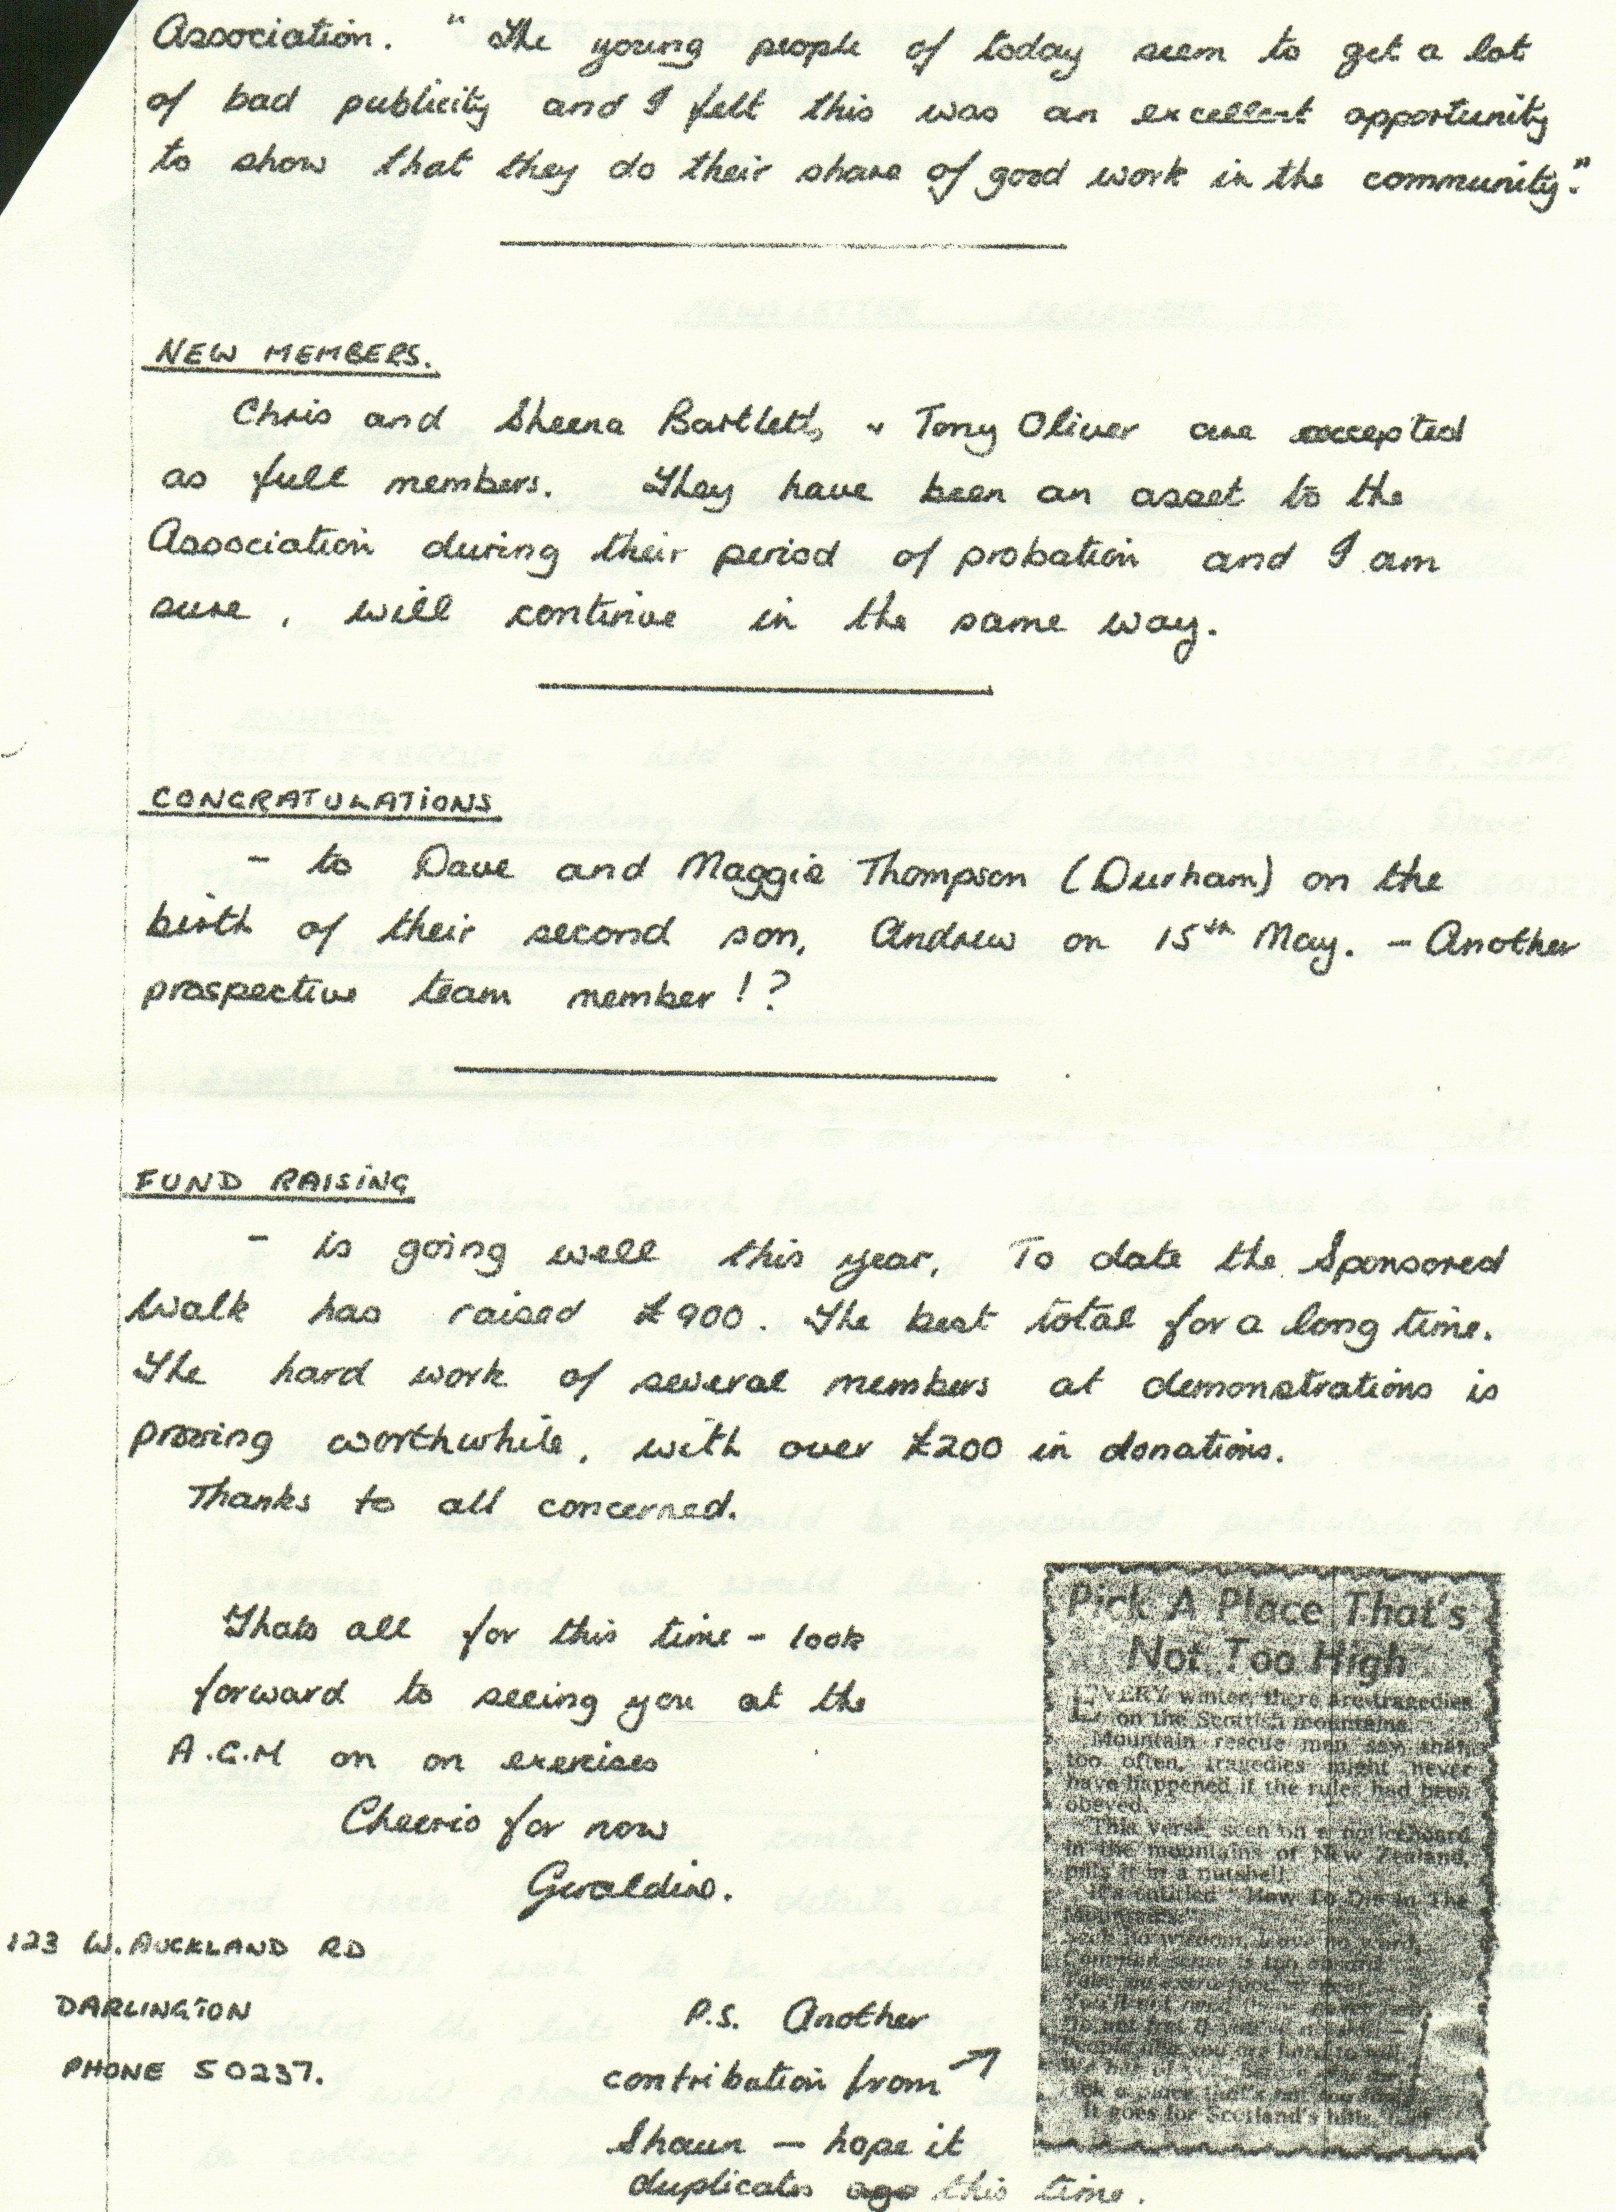 Association. "The young people of today seem to get a lot
of bad publicity and I felt this was an excellent opportunity
to show that they do their share of good work in the community."
NEW MEMBERS.
Chris and Sheena Bartlett, & Tony Oliver are accepted
as full members. They have been an asset to the
Association during their period of probation and I am
sure, will continue in the same way.
CONGRATULATIONS
- to Dave and Maggie Thompson (Durham) on the
birth of their second son, Andrew on 15th May. - Another
prospective team member!?
FUND RAISING
- is going well this year, To date the Sponsored
Walk has raised £900. The best total for a long time.
The hard work of several members at demonstrations is
proving worthwhile, with over £200 in donations.
Thanks to all concerned.
Thats all for this time - look
forward to seeing you at the
A.G.M on on exercises
Cheerio for now
Geraldine.
123 W. AUCKLAND RD
DARLINGTON
PHONE 50237.
P.S. Another
contribution from
Shaun - hope it
duplicates ago this time.
Pick A Place That's
Not Too High
EVERY winter, there are tragedies
on the Scottish mountains.
Mountain rescue men say that,
too often, tragedies might never
have happened if the rules had been
obeyed.
This verse, seen on a noticeboard
in the mountains of New Zealand,
puts it in a nutshell.
It's entitled "How To Die In The
Mountains."
Seek no wisdom, leave no word,
Common sense is
You'll not need
People like you are hard to kill
It goes for Scotland's hills,